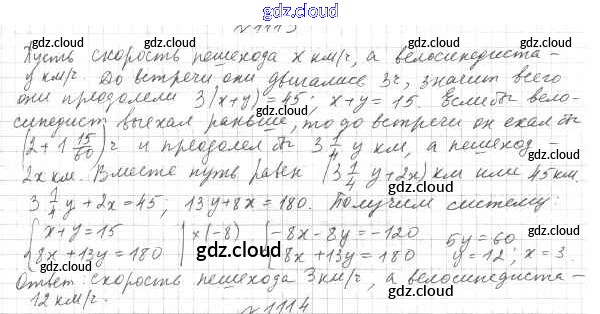 gdz.cloud
№1113
Пусть скорость пешехода x км/ч, а велосипедиста –
y км/ч. До встречи они двигались 3ч, значит всего
они преодолели 3(x+y)=45, x+y=15. Если бы вело-
сипедист выехал раньше, то до встречи он ехал бы
(2+1 15/60)ч и преодолел бы 3 1/4 y км, а пешеход –
2x км. Вместе путь равен (3 1/4 y+2x) км или 45 км.
3 1/4 y+2x=45; 13y+8x=180. Получим систему:
{x+y=15 |x(-8) {-8x-8y=-120 5y=60
{8x+13y=180 {8x+13y=180 y=12; x=3.
Ответ: скорость пешехода 3км/ч, а велосипедиста –
12 км/ч.
№1114
gdz.cloud
gdz.cloud
gdz.cloud
gdz.cloud
gdz.cloud
gdz.cloud
gdz.cloud
gdz.cloud
gdz.cloud
gdz.cloud
gdz.cloud
gdz.cloud
gdz.cloud